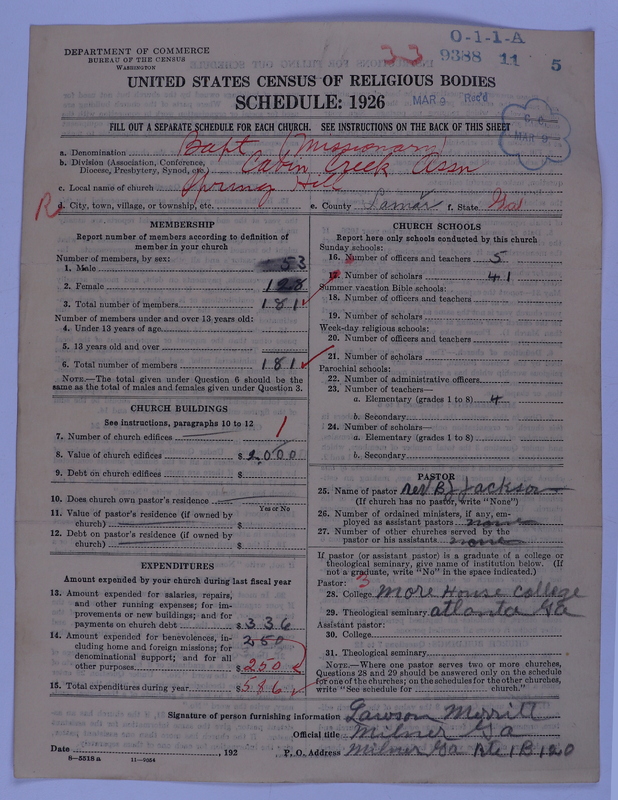 O-1-1-A
33 9388 11 5
DEPARTMENT OF COMMERCE
BUREAU OF THE CENSUS
WASHINGTON
UNITED STATES CENSUS OF RELIGIOUS BODIES
SCHEDULE: 1926
MAR 9 Rec'd
MAR 9
FILL OUT A SEPARATE SCHEDULE FOR EACH CHURCH. SEE INSTRUCTIONS ON THE BACK OF THIS SHEET
a. Denomination Bapt (Missionary)
b. Division (Association, Conference, Diocese, Presbytery, Synod, etc.) Cabin Creek Assn
c. Local name of church Spring Hill
d. City, town, village, or township, etc. e. County Lamar f. State Ga
MEMBERSHIP
Report number of members according to definition of member in your church
Number of members, by sex:
1. Male 53
2. Female 128
3. Total number of members 181
Number of members under and over 13 years old:
4. Under 13 years of age
5. 13 years old and over
6. Total number of members 181
NOTE.—The total given under Question 6 should be same as the total of males and females given under Question 3.
CHURCH BUILDINGS
See instructions, paragraphs 10 to 12
7. Number of church edifices 1
8. Value of church edifices $ 2,000
9. Debt on church edifices $
10. Does church own pastor's residence
Yes or No
11. Value of pastor's residence (if owned by church) $
12. Debt on pastor's residence (if owned by church) $
EXPENDITURES
Amount expended by your church during last fiscal year
13. Amount expended for salaries, repairs, and other running expenses; for improvements or new buildings; and for payments on church debt $ 336
14. Amount expended for benevolences, including home and foreign missions; for denominational support; and for all other purposes 250 $ 250
15. Total expenditures during year $ 586
CHURCH SCHOOLS
Report here only schools conducted by this church
Sunday schools:
16. Number of officers and teachers 5
17. Number of scholars 41
Summer vacation Bible schools:
18. Number of officers and teachers
19. Number of scholars
Week-day religious schools:
20. Number of officers and teachers
21. Number of scholars
Parochial schools:
22. Number of administrative officers
23. Number of teachers—
a. Elementary (grades 1 to 8) 4
b. Secondary
24. Number of scholars—
a. Elementary (grades 1 to 8)
b. Secondary
PASTOR
25. Name of pastor Rev BJ Jackson
(If church has no pastor, write "None")
26. Number of ordained ministers, if any, employed as assistant pastors none
27. Number of other churches served by the pastor or his assistants none
If pastor (or assistant pastor) is a graduate of a college or theological seminary, give name of institution below. (If not a graduate, write "No" in the space indicated.)
Pastor: 3
28. College More House College
29. Theological seminary atlanta Ga
Assistant pastor:
30. College
31. Theological seminary
NOTE.—Where one pastor serves two or more churches, Questions 28 and 29 should be answered only on the schedule for one of the churches; on the schedules for the other churches, write "See schedule for church."
Signature of person furnishing information Lawson Merritt
Official title Milner Ga
Date , 192 P. O. Address Milner Ga Rte 1 B 120
8—5518 a 11—9554